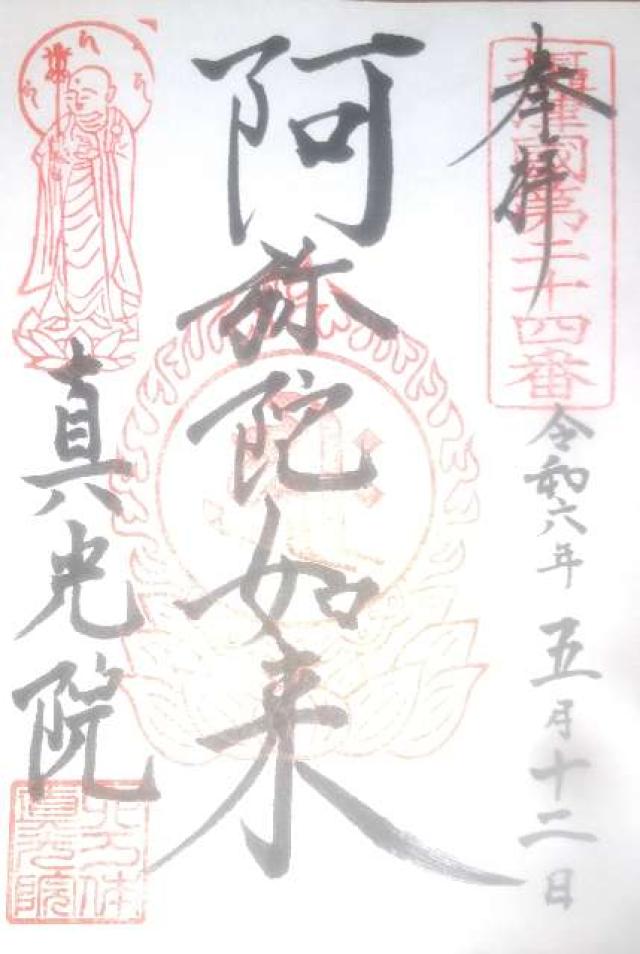 奉拝
摂津國第二十四番
令和六年五月十二日
阿弥陀如来
真光院